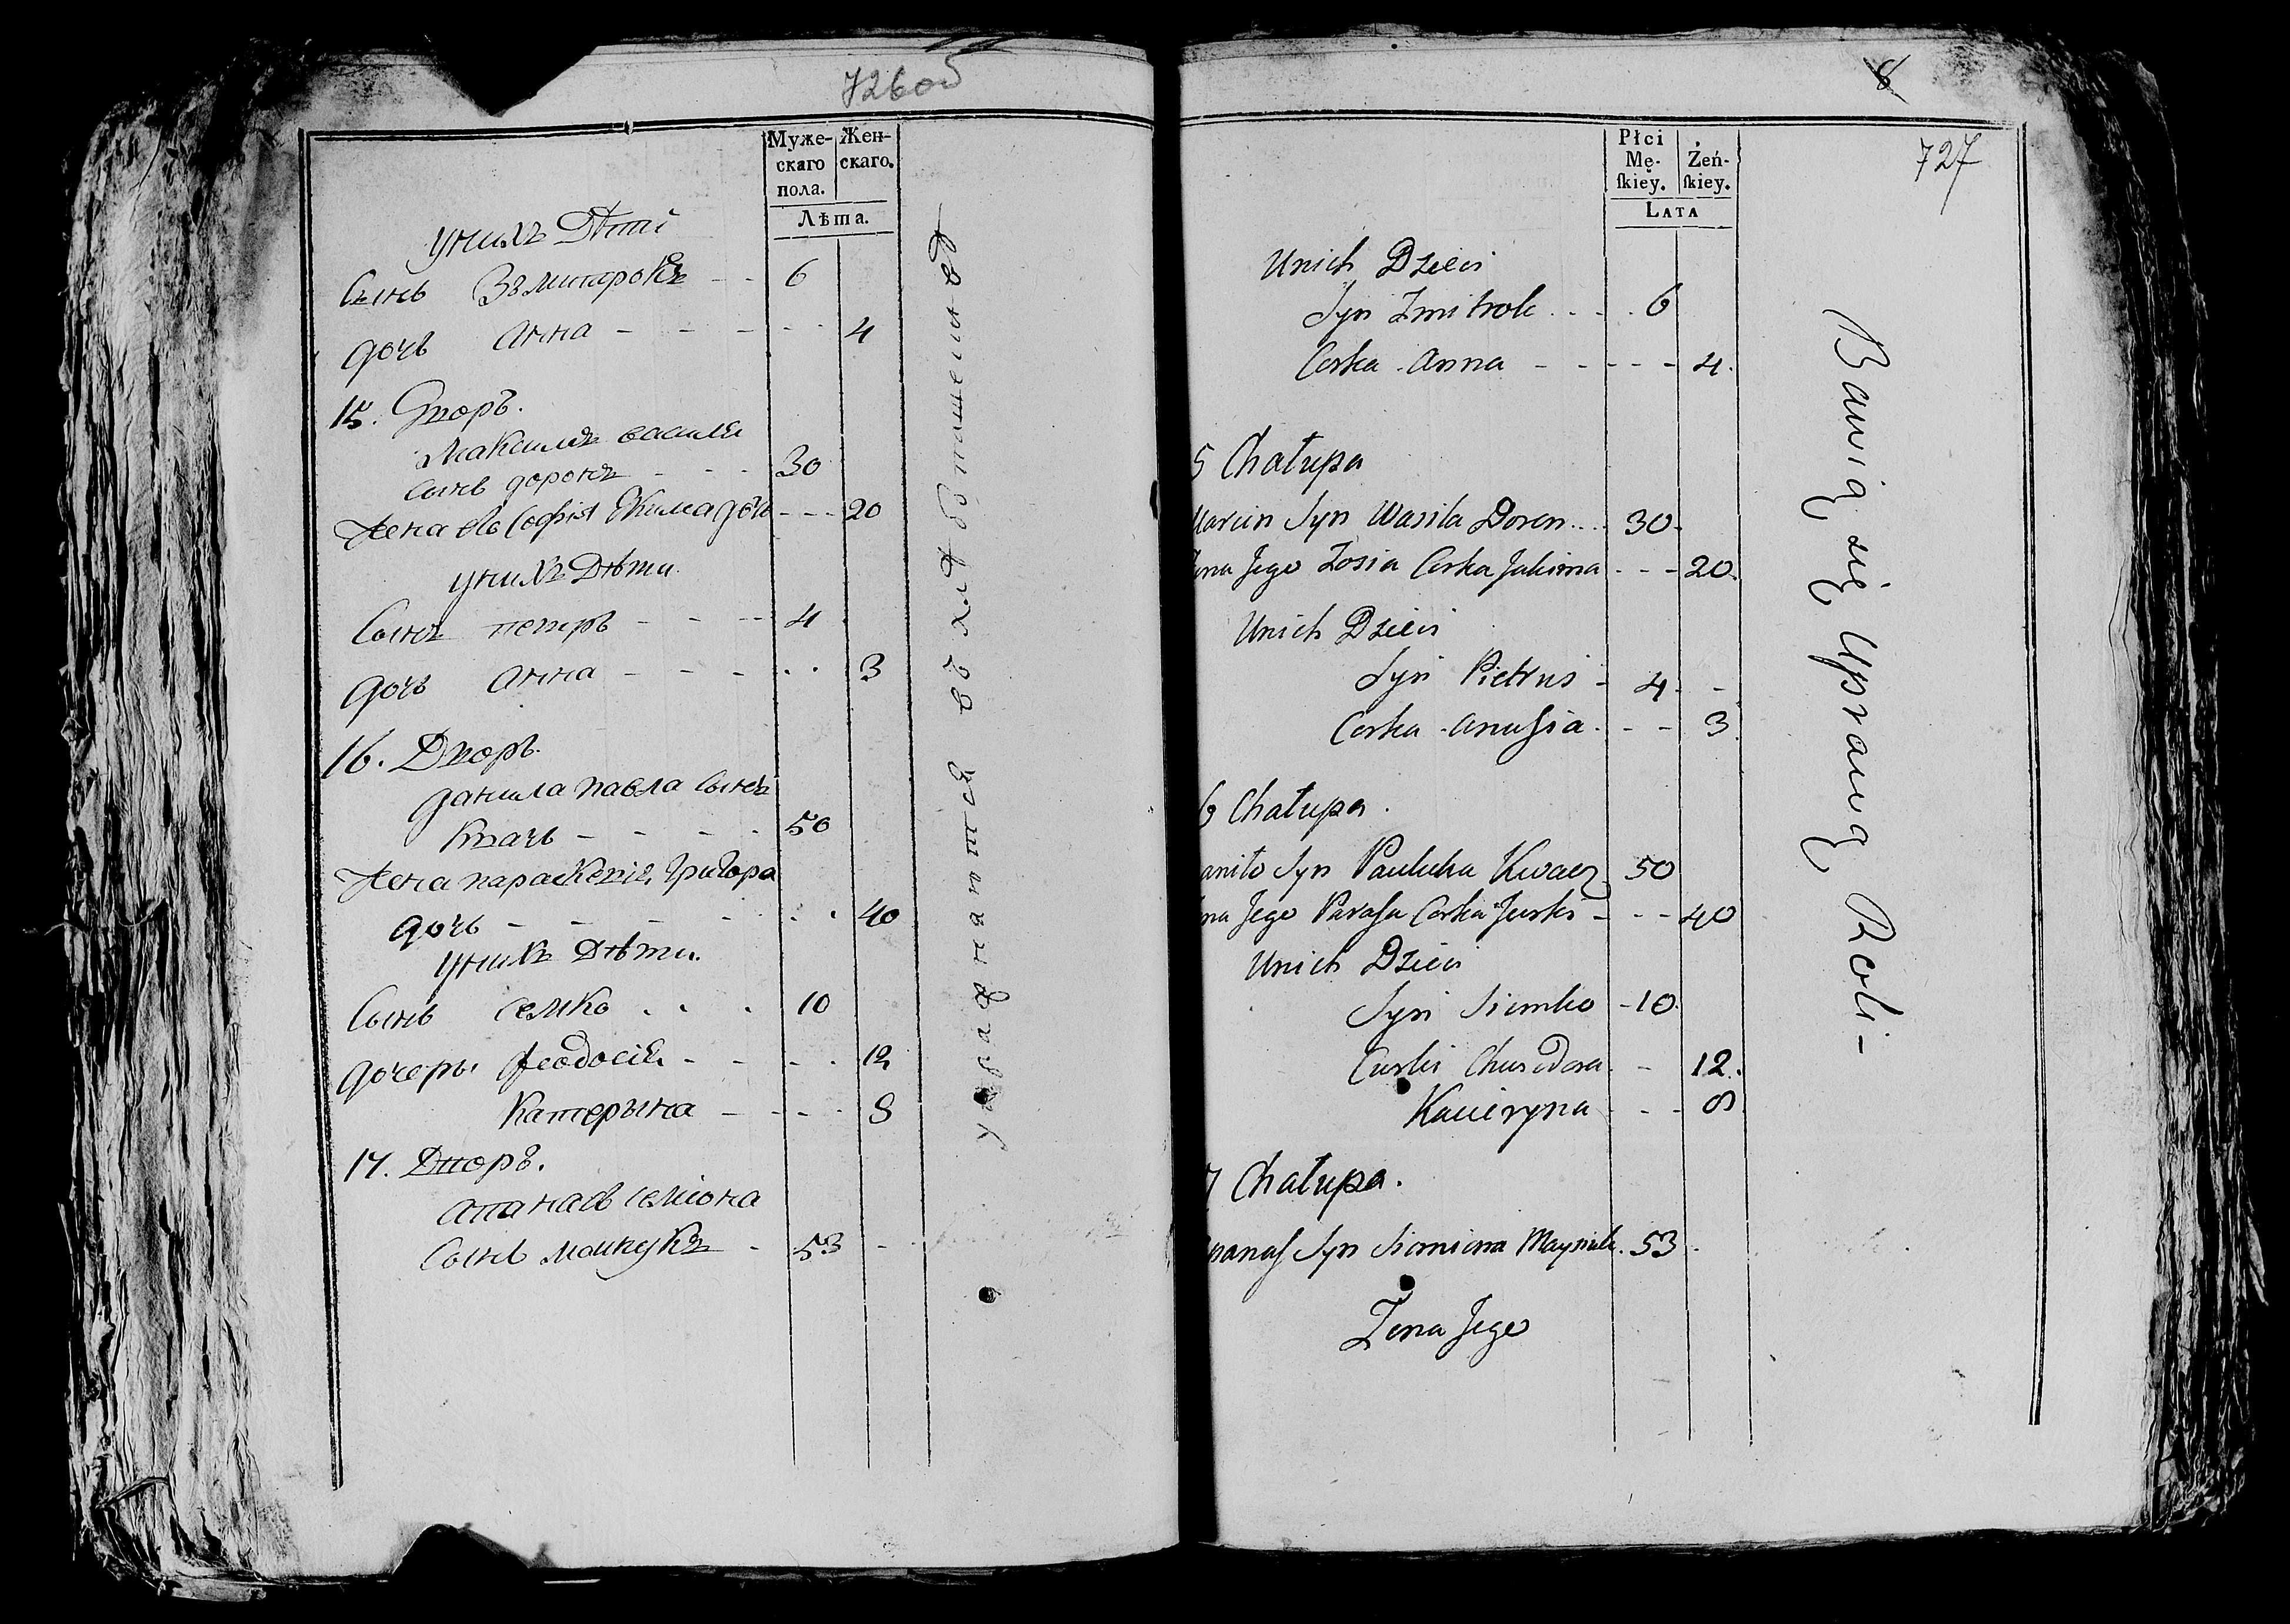 726об
Муже-
скаго
пола.
Жен-
скаго.
Лѣта.
унихъ Дѣти
Сынъ Взмитрокъ - - 6
дочь анна - - - - - 4
15. Дворъ.
Максимъ василя
сынъ доронъ - - - 30
жена его Софія Екима дочь - - - 20
унихъ Дѣти.
Сынъ петръ - - - 4
дочь анна - - - - - 3
16. Дворъ.
данила павла сынъ
Квачь - - - - 50
жена параскевія Григора
дочь - - - - - - 40
унихъ Дѣти.
Сынъ семко . . . 10
дочеры феодосія - - - - 12
Катерына - - - - 8
17. Дворъ.
апанасъ семіона
сынъ - 53 -
8
727
Płci
Mę-
ſkiey.
Żeń-
ſkiey.
LATA
Unich Dzieci
Syn Zmitrok . . . . 6
Corka Anna - - - - - 4.
5 Chałupa
Marcin Syn Wasila Doron . . . 30.
ena Jego Zosia Corka Jakima - - - 20.
Unich Dzieci
Syn Pietruś - 4. -
Corka Anuſia. - - 3
6 Chałupa.
anilo Syn Pauluka Kwacz 50
na Jego Paraſa Corka Jurki - - - 40
Unich Dzieci
Syn Siemko - 10.
Curki - 12.
Kacieryna - - - 8
7 Chałupa.
panaſ Syn Siemiona 53.
Zona Jego
Bawią się Uprawą Roli -